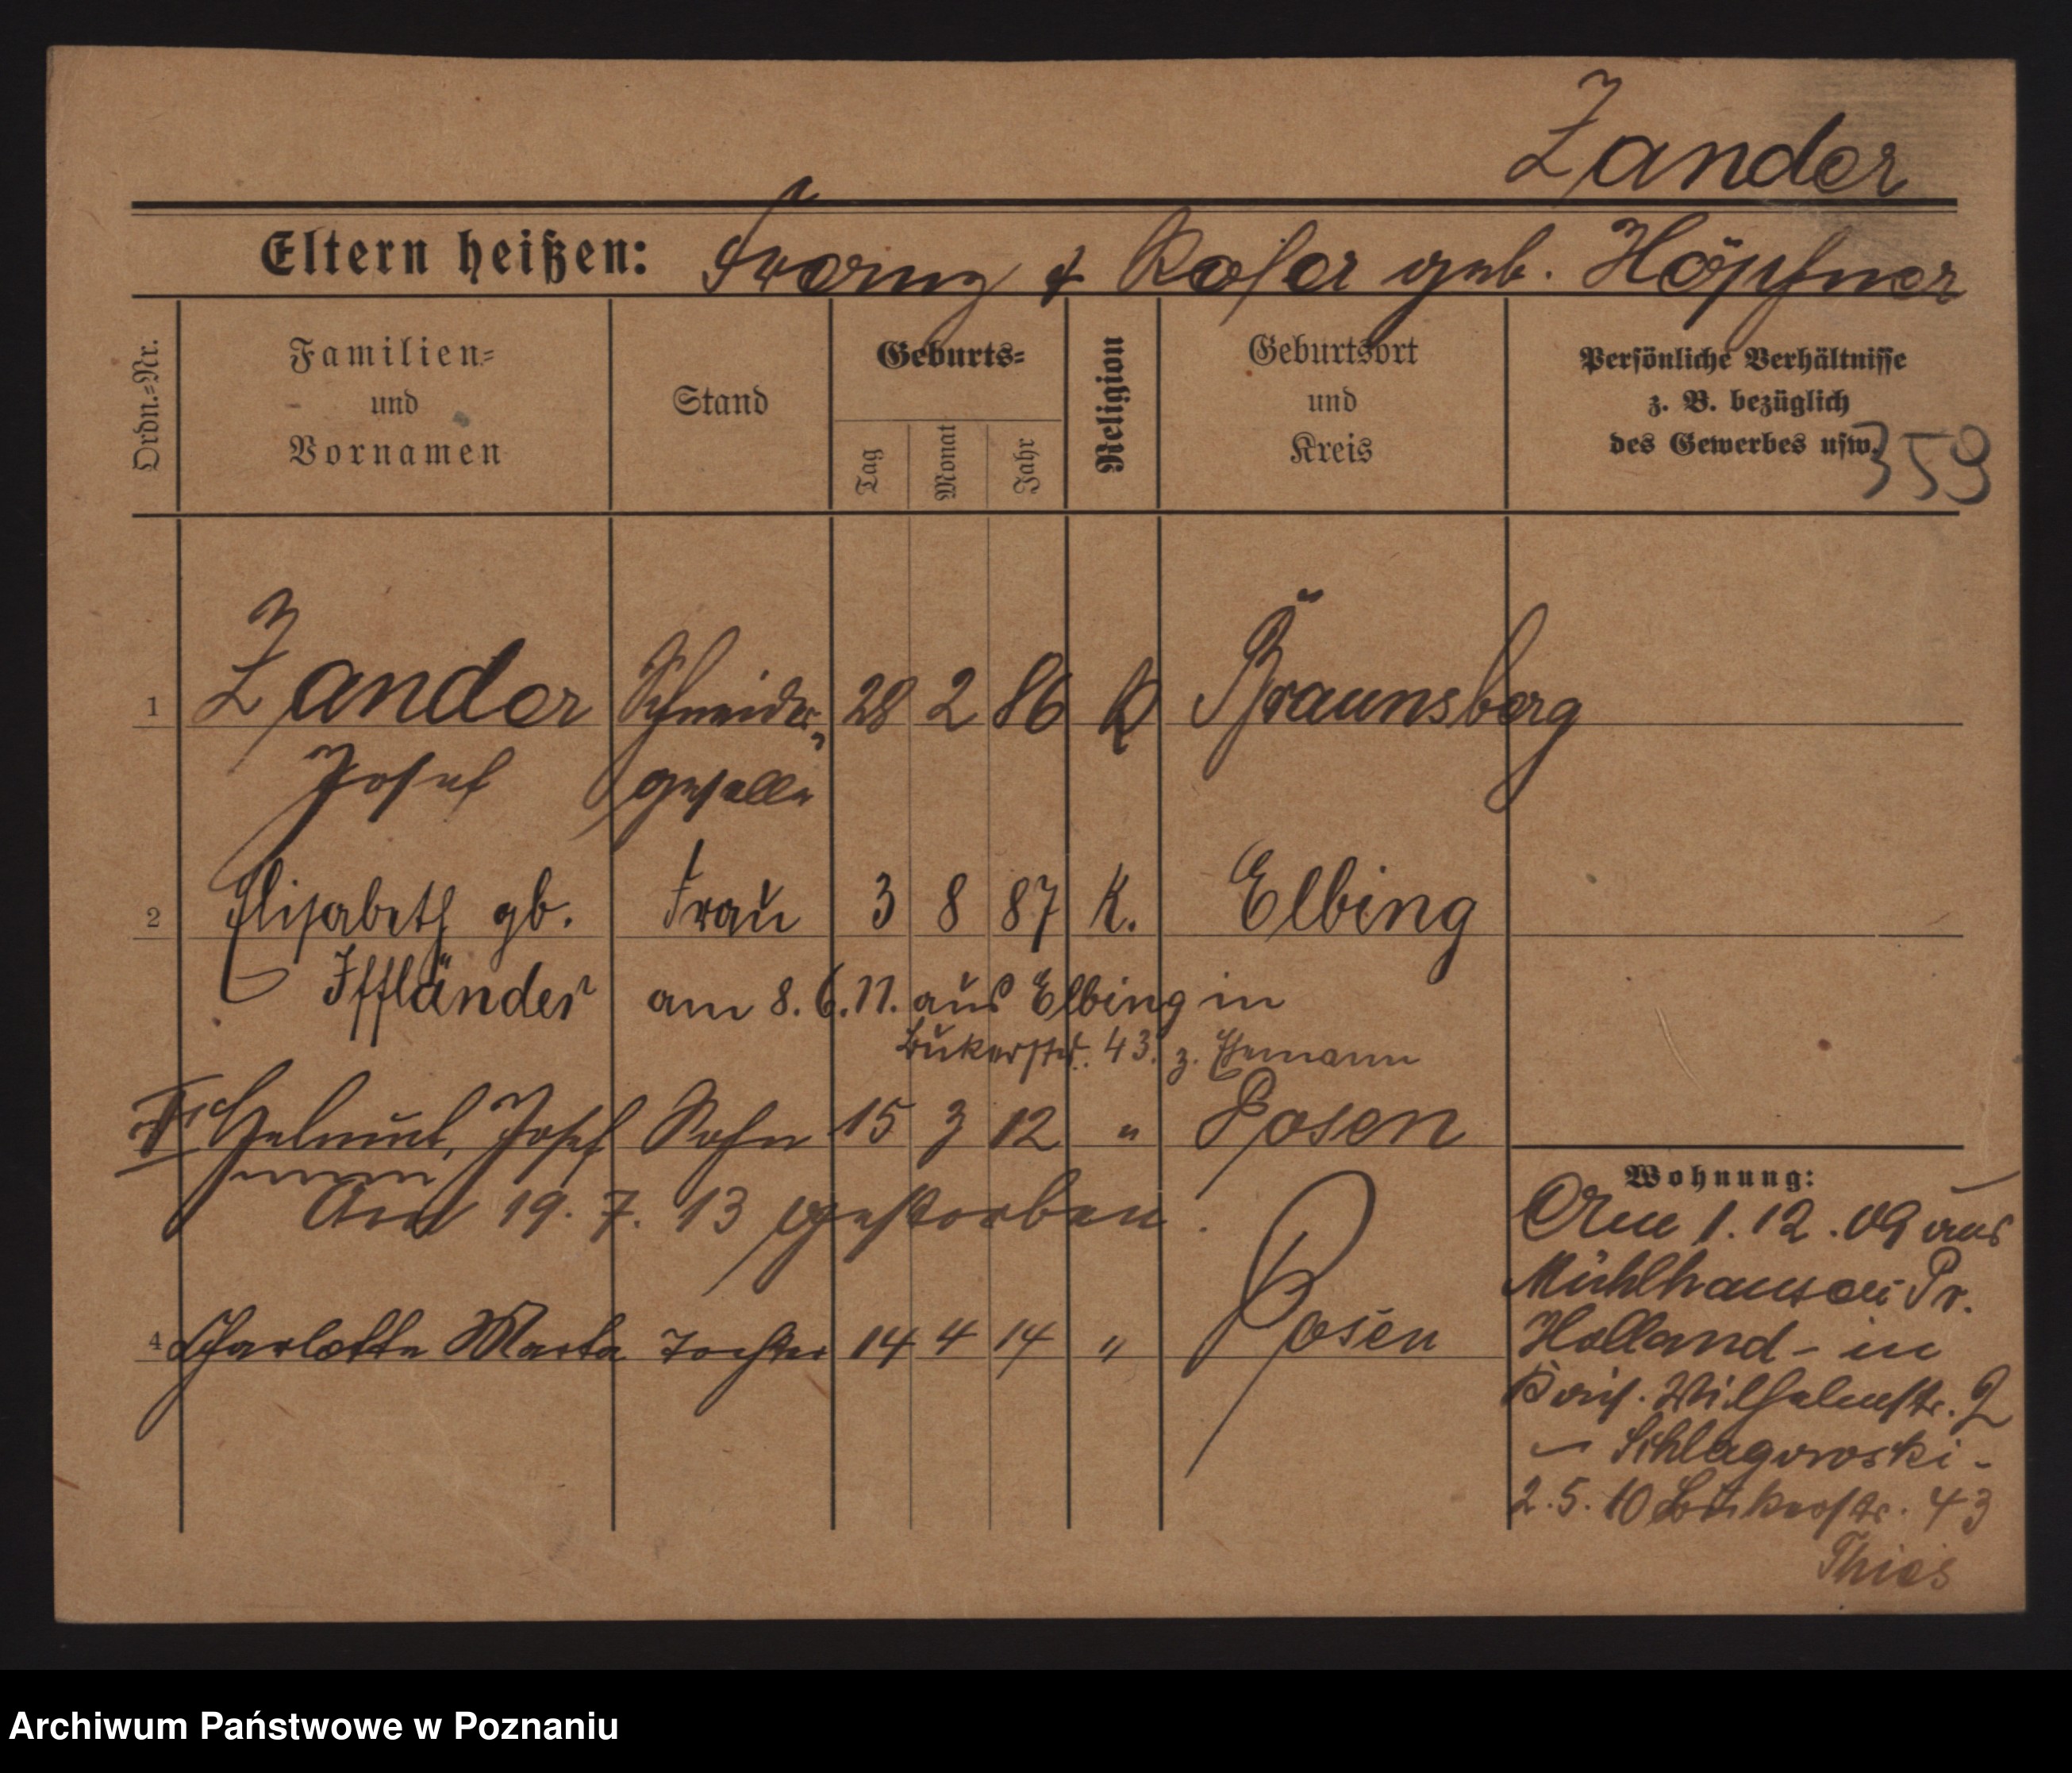 Zander
Eltern heißen: Franz & Rosa geb. Höpfner
Ordn.=Nr.
Familien=
und
Vornamen
Stand
Geburts=
Tag
Monat
Jahr
Religion
Geburtsort
und
Kreis
Persönliche Verhältnisse
z. B. bezüglich
des Gewerbes usw.
359
1 Zander Schneider= 28 2 86 K Braunsberg
Josef geselle
2 Elisabeth gb. Frau 3 8 87 K. Elbing
Iffländer am 8.6.11. aus Elbing in
Bukerstr. 43. z. Ehemann
Helmut, Josef Sohn 15 3 12 " Posen
Am 19. 7. 13 gestorben.
4 Charlotte Marta Tochter 14 4 14 " Posen
Wohnung:
Am 1.12.09 aus
Mühlhausen Pr.
Holland - in
Wilhelmstr. 2
- Schlagowski -
2.5.10 Bukerstr. 43
Thies
Archiwum Państwowe w Poznaniu